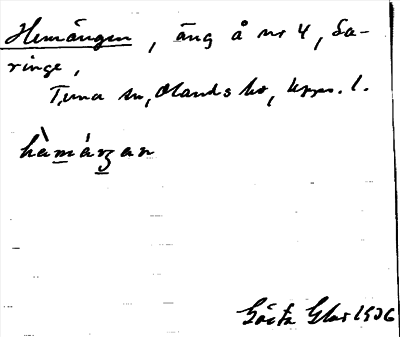 Hemängen, äng å nr 4, Sa-
ringe,
Tuna sn, Olands hd, Upps. l.
hàmáŋan
Gösta Glas 1906